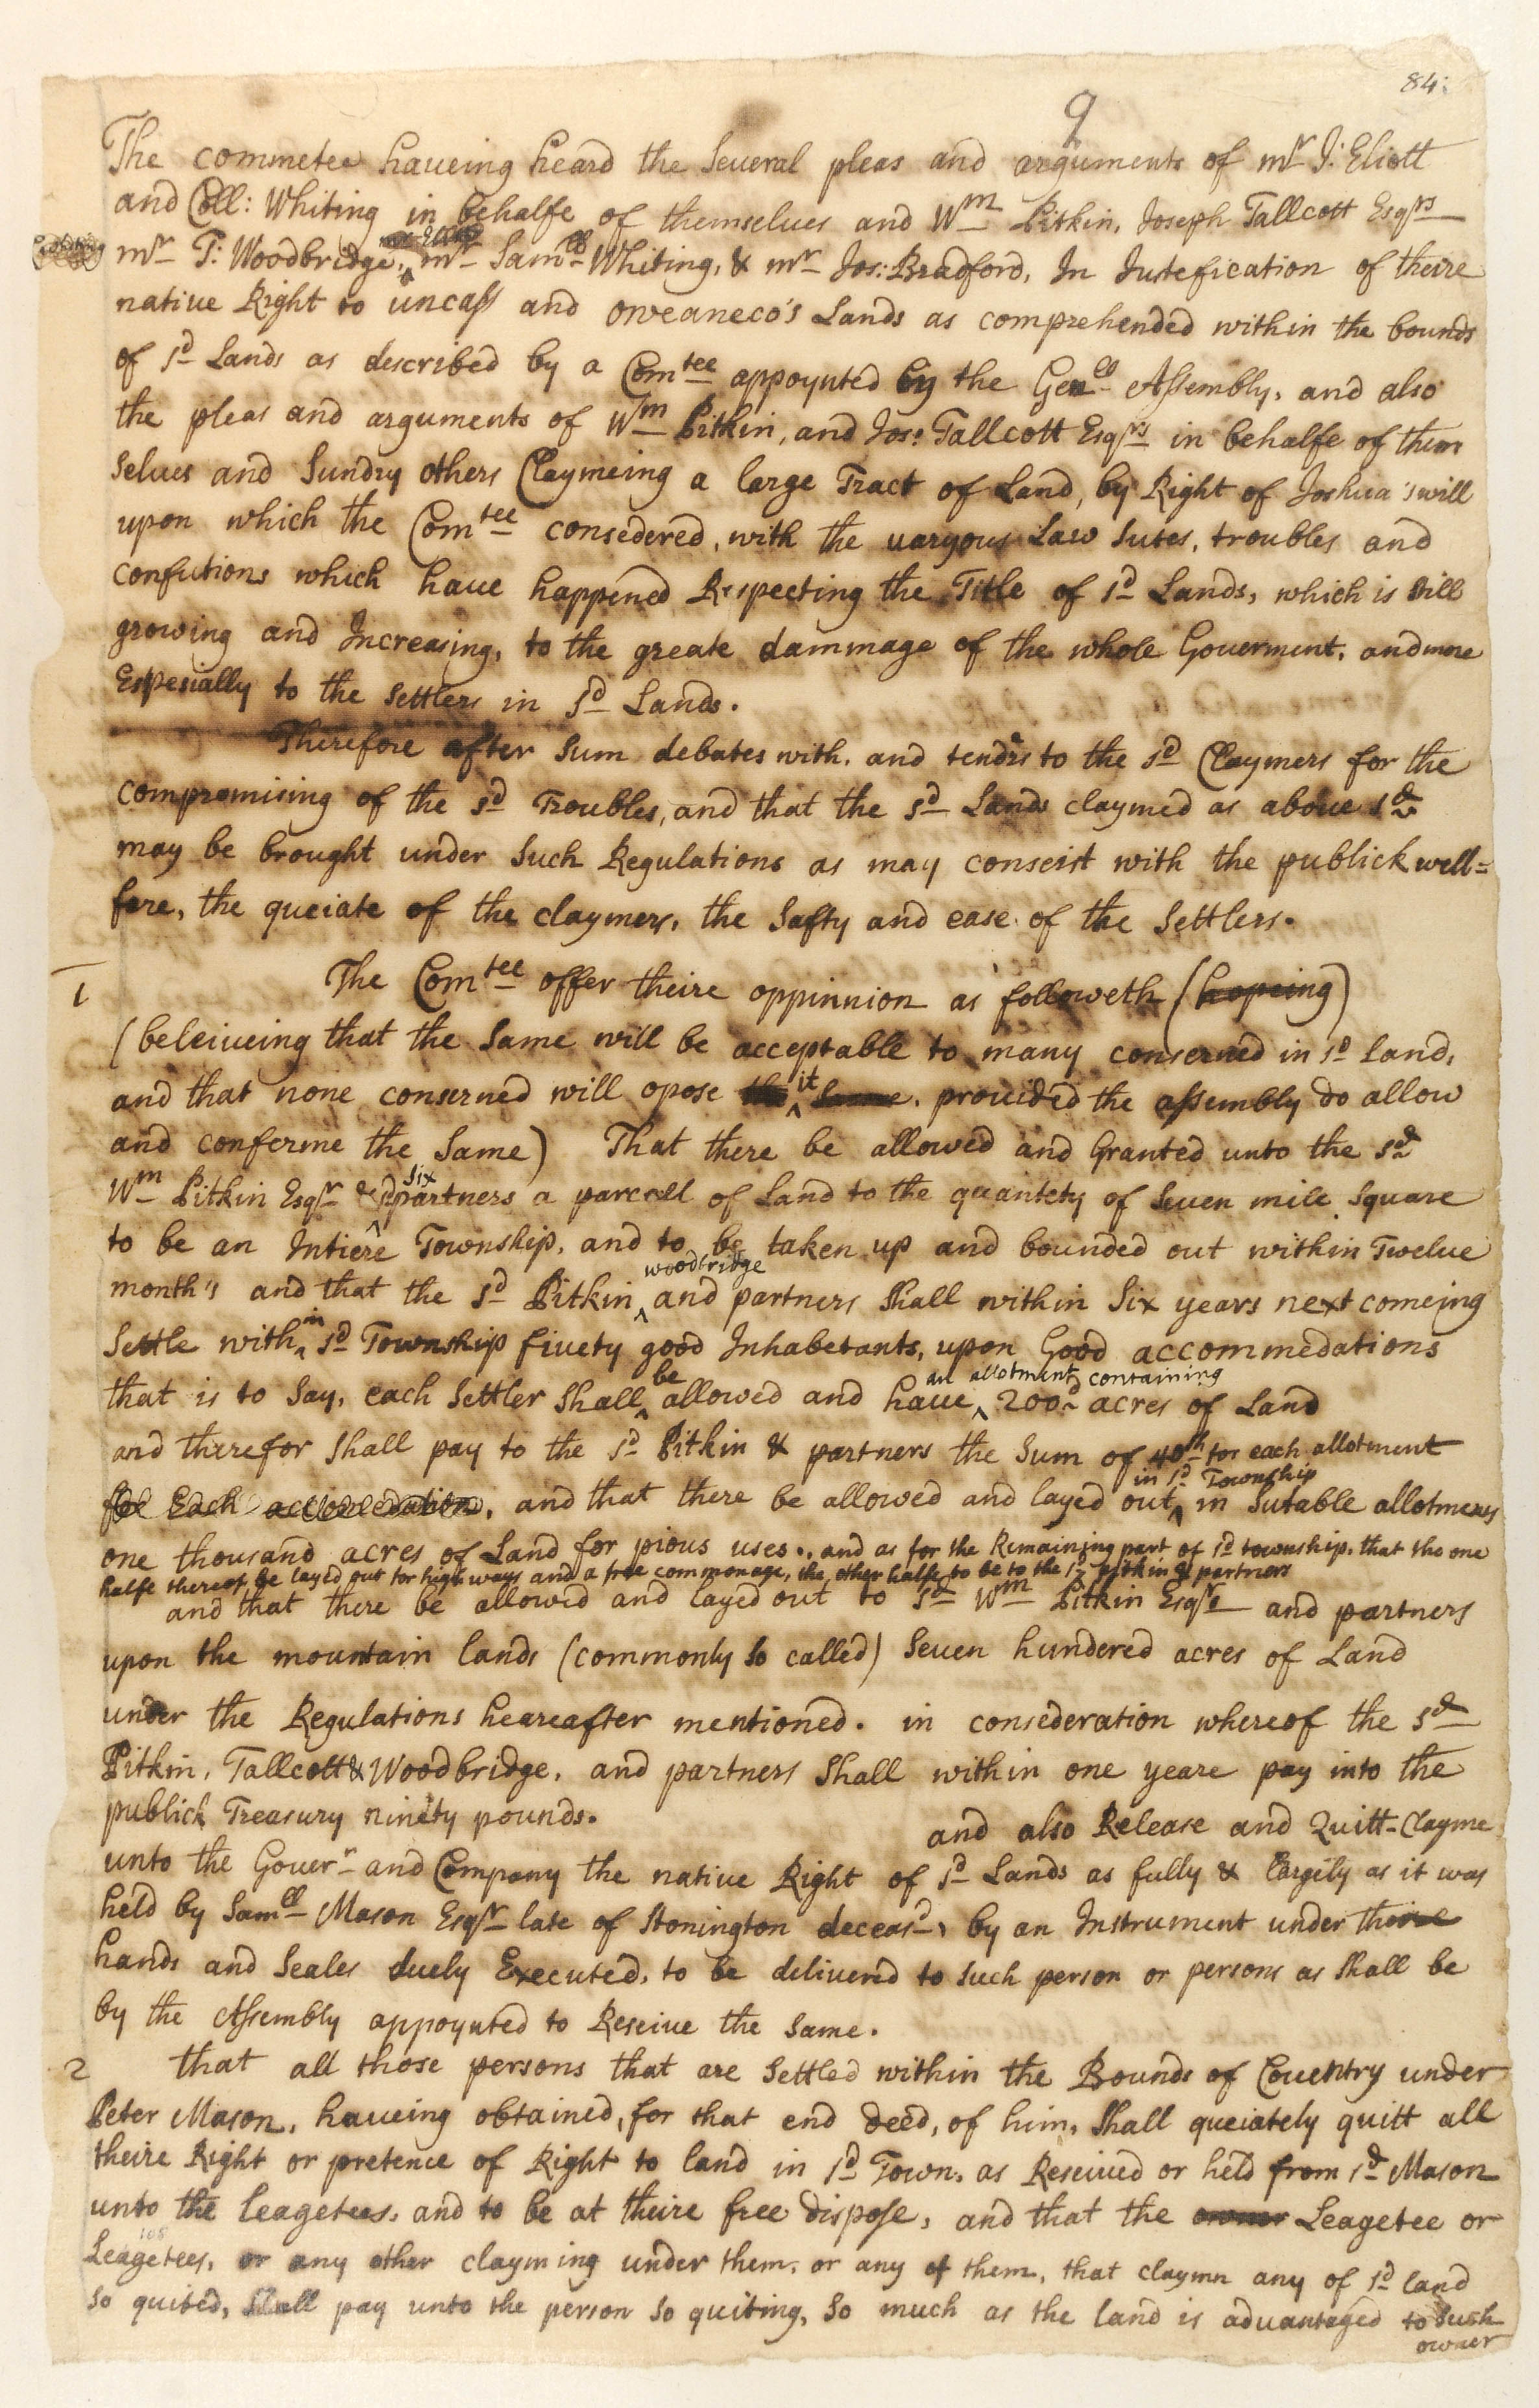 84:
9
The commetee haueing heard the Seueral pleas and arguments of mr J: Eliott
and Coll: Whiting in behalfe of themselues and Wm Pitkin, Joseph Tallcott Esqrs
mr T: Woodbridge, mr Samll Whiting, & mr Jos: Bradford, In Justefication of theire
native Right to uncass and oweaneco's Lands as comprehended within the bounds
of sd Lands as described by a Comtee appoynted by the Genll Assembly, and also
the pleas and arguments of Wm Pitkin, and Jos: Tallcott Esqrs in behalfe of them
selues and Sundry others Claymeing a large Tract of Land, by Right of Joshua's will
upon which the Comtee consedered, with the uaryous Law Sutes, troubles and
confutions which haue happened Respecting the Title of sd Lands, which is still
growing and Increasing, to the greate dammage of the whole Gouerment, and more
Espesially to the Settlers in sd Lands.
Therefore after Sum debates with, and tendrs to the sd Claymers for the
compromising of the sd Troubles, and that the sd Lands claymed as aboue sd
may be brought under Such Regulations as may conseist with the publick well=
fare, the queiate of the claymers, the Safty and ease of the Settlers.
1
The Comtee offer theire oppinnion as followeth (hopeing)
(beleiueing that the Same will be acceptable to many conserned in sd Land,
and that none conserned will opose the it Same, prouided the assembly do allow
and conferme the Same) That there be allowed and Granted unto the sd
Wm Pitkin Esqr & Six partners a parcell of Land to the quantety of Seuen mile Square
to be an Intiere Township, and to be taken up and bounded out within Twelue
woodbridge
month's and that the sd Pitkin and partners Shall within Six years next comeing
Settle with in sd Township fiuety good Inhabetants, upon Good accommedations
be an allotment containing
that is to Say, each Settler Shall allowed and haue 200d acres of Land
and therefor Shall pay to the sd Pitkin & partners the Sum of 40sh for each allotment
in sd Township
for Each accomedation, and that there be allowed and layed out in Sutable allotments
one thousand acres of Land for pious uses., and as for the Remaining part of sd township, that the one
halfe thereof be layed out for high ways and a free commonage, the other halfe to be to the sd pitkin & partners
and that there be allowed and layed out to sd Wm Pitkin Esqr and partners
upon the mountain lands (commonly so called) Seuen hundered acres of Land
under the Regulations heareafter mentioned. in consederation whereof the sd
Pitkin, Tallcott & Woodbridge, and partners Shall within one yeare pay into the
publick Treasury ninety pounds. and also Release and Quitt-Clayme
unto the Gouerr and Company the natiue Right of sd Lands as fully & largely as it was
held by Samll Mason Esqr late of Stonington deceasd, by an Instrument under theire
hands and Seales duely Executed, to be deliuered to Such person or persons as Shall be
by the Assembly appoynted to Reseiue the Same.
2 that all those persons that are Settled within the Bounds of Couentry under
Peter Mason, haueing obtained, for that end deed, of him, Shall queiately quitt all
theire Right or pretence of Right to land in sd Town, as Reseiued or held from sd Mason
unto the leagetees, and to be at theire free dispose, and that the owner Leagetee or
Leagetees, or any other clayming under them, or any of them, that claymn any of sd land
So quited, Shall pay unto the person So quiting, So much as the land is aduantaged to Such
owner